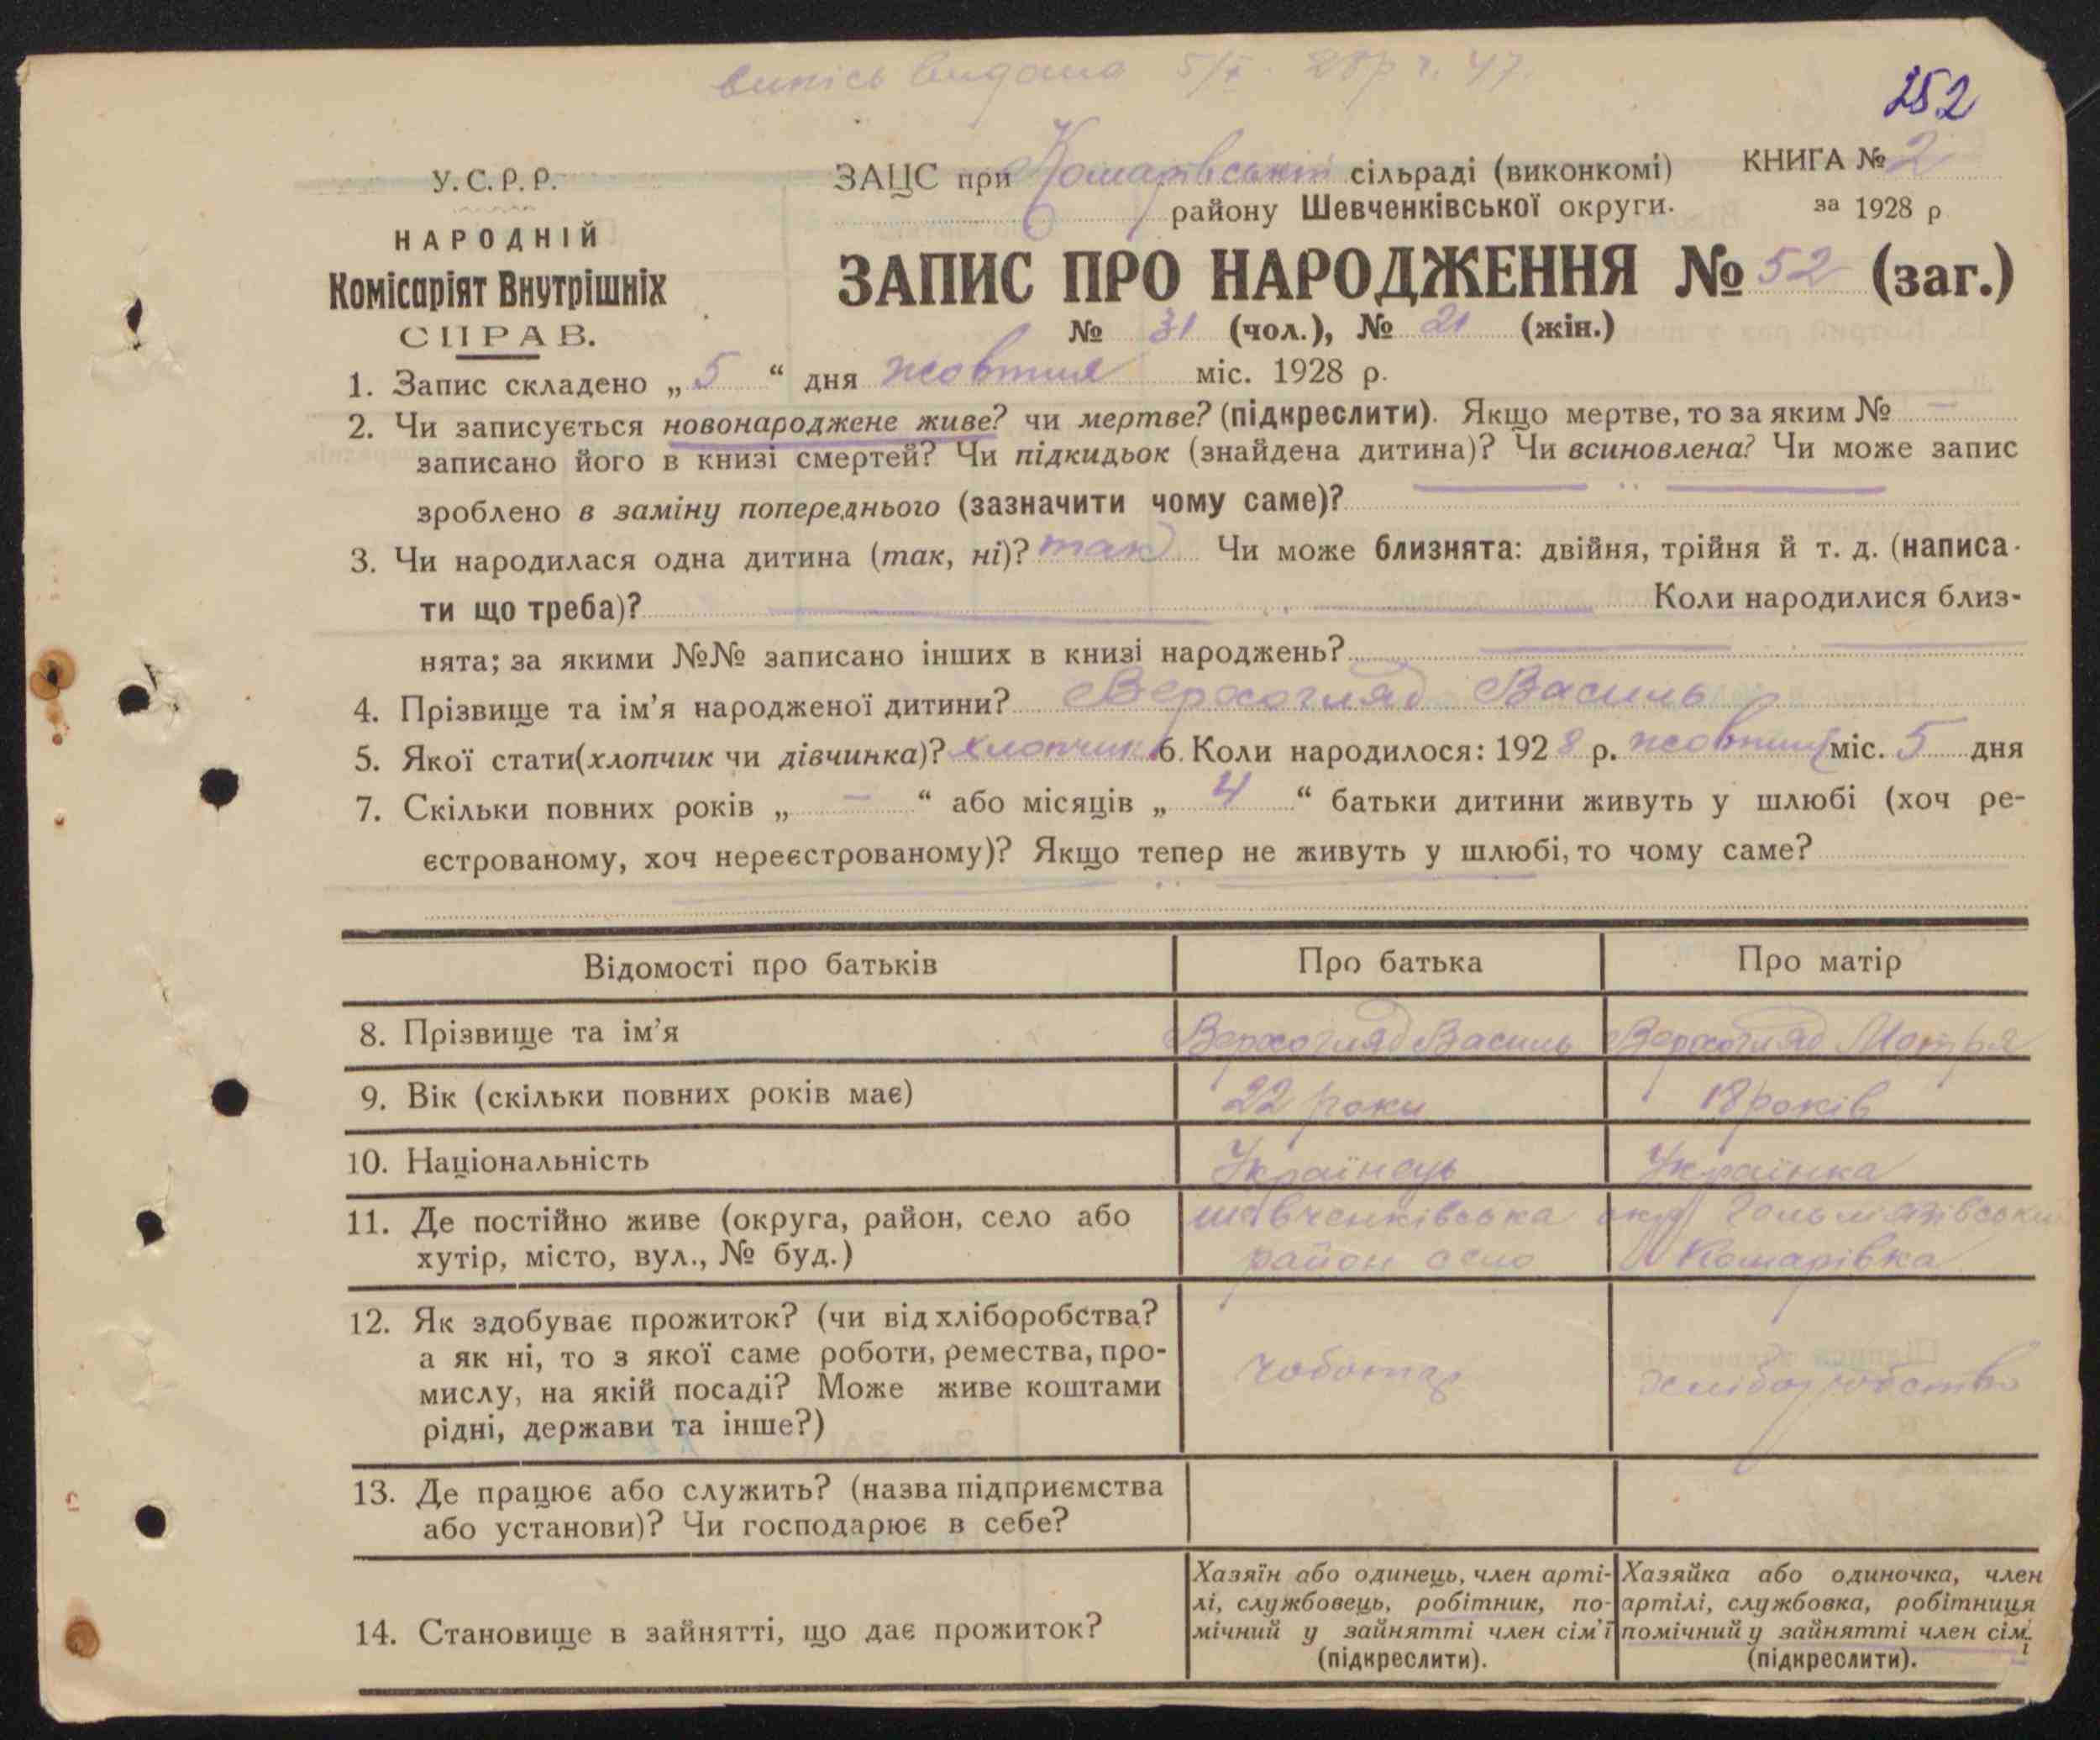 випись видана 5/X. 28р ч. 47.
252
У.С.Р.Р.
НАРОДНІЙ
Комісаріят Внутрішніх
СПРАВ.
ЗАЦС при Комарівській сільраді (виконкомі)
КНИГА № 2
району Шевченківської округи.
за 1928 р
ЗАПИС ПРО НАРОДЖЕННЯ № 52 (заг.)
№ 31 (чол.), № 21 (жін.)
1. Запис складено „ 5 “ дня жовтня міс. 1928 р.
2. Чи записується новонароджене живе? чи мертве? (підкреслити). Якщо мертве, то за яким № —
записано його в книзі смертей? Чи підкидьок (знайдена дитина)? Чи всиновлена? Чи може запис
зроблено в заміну попереднього (зазначити чому саме)?
3. Чи народилася одна дитина (так, ні)? так Чи може близнята: двійня, трійня й т. д. (написа-
ти що треба)? Коли народилися близ-
нята; за якими №№ записано інших в книзі народжень?
4. Прізвище та ім’я народженої дитини? Верхогляд Василь
5. Якої стати (хлопчик чи дівчинка)? хлопчик 6. Коли народилося: 1928 р. жовтня міс. 5 дня
7. Скільки повних років „ — “ або місяців „ 4 “ батьки дитини живуть у шлюбі (хоч ре-
єстрованому, хоч нереєстрованому)? Якщо тепер не живуть у шлюбі, то чому саме?
Відомості про батьків Про батька Про матір
8. Прізвище та ім’я Верхогляд Василь Верхогляд Мотря
9. Вік (скільки повних років має) 22 роки 18 років
10. Національність Українець Українка
11. Де постійно живе (округа, район, село або Шевченківська окр. Гельмязівськи
хутір, місто, вул., № буд.) район село Комарівка
12. Як здобуває прожиток? (чи від хліборобства?
а як ні, то з якої саме роботи, ремества, про-
мислу, на якій посаді? Може живе коштами
рідні, держави та інше?)
чоботар хліборобство
13. Де працює або служить? (назва підприємства
або установи)? Чи господарює в себе?
14. Становище в зайнятті, що дає прожиток?
Хазяїн або одинець, член арті-
лі, службовець, робітник, по-
мічний у зайнятті член сім’ї
(підкреслити).
Хазяйка або одиночка, член
артілі, службовка, робітниця
помічний у зайнятті член сім.
ї
(підкреслити).